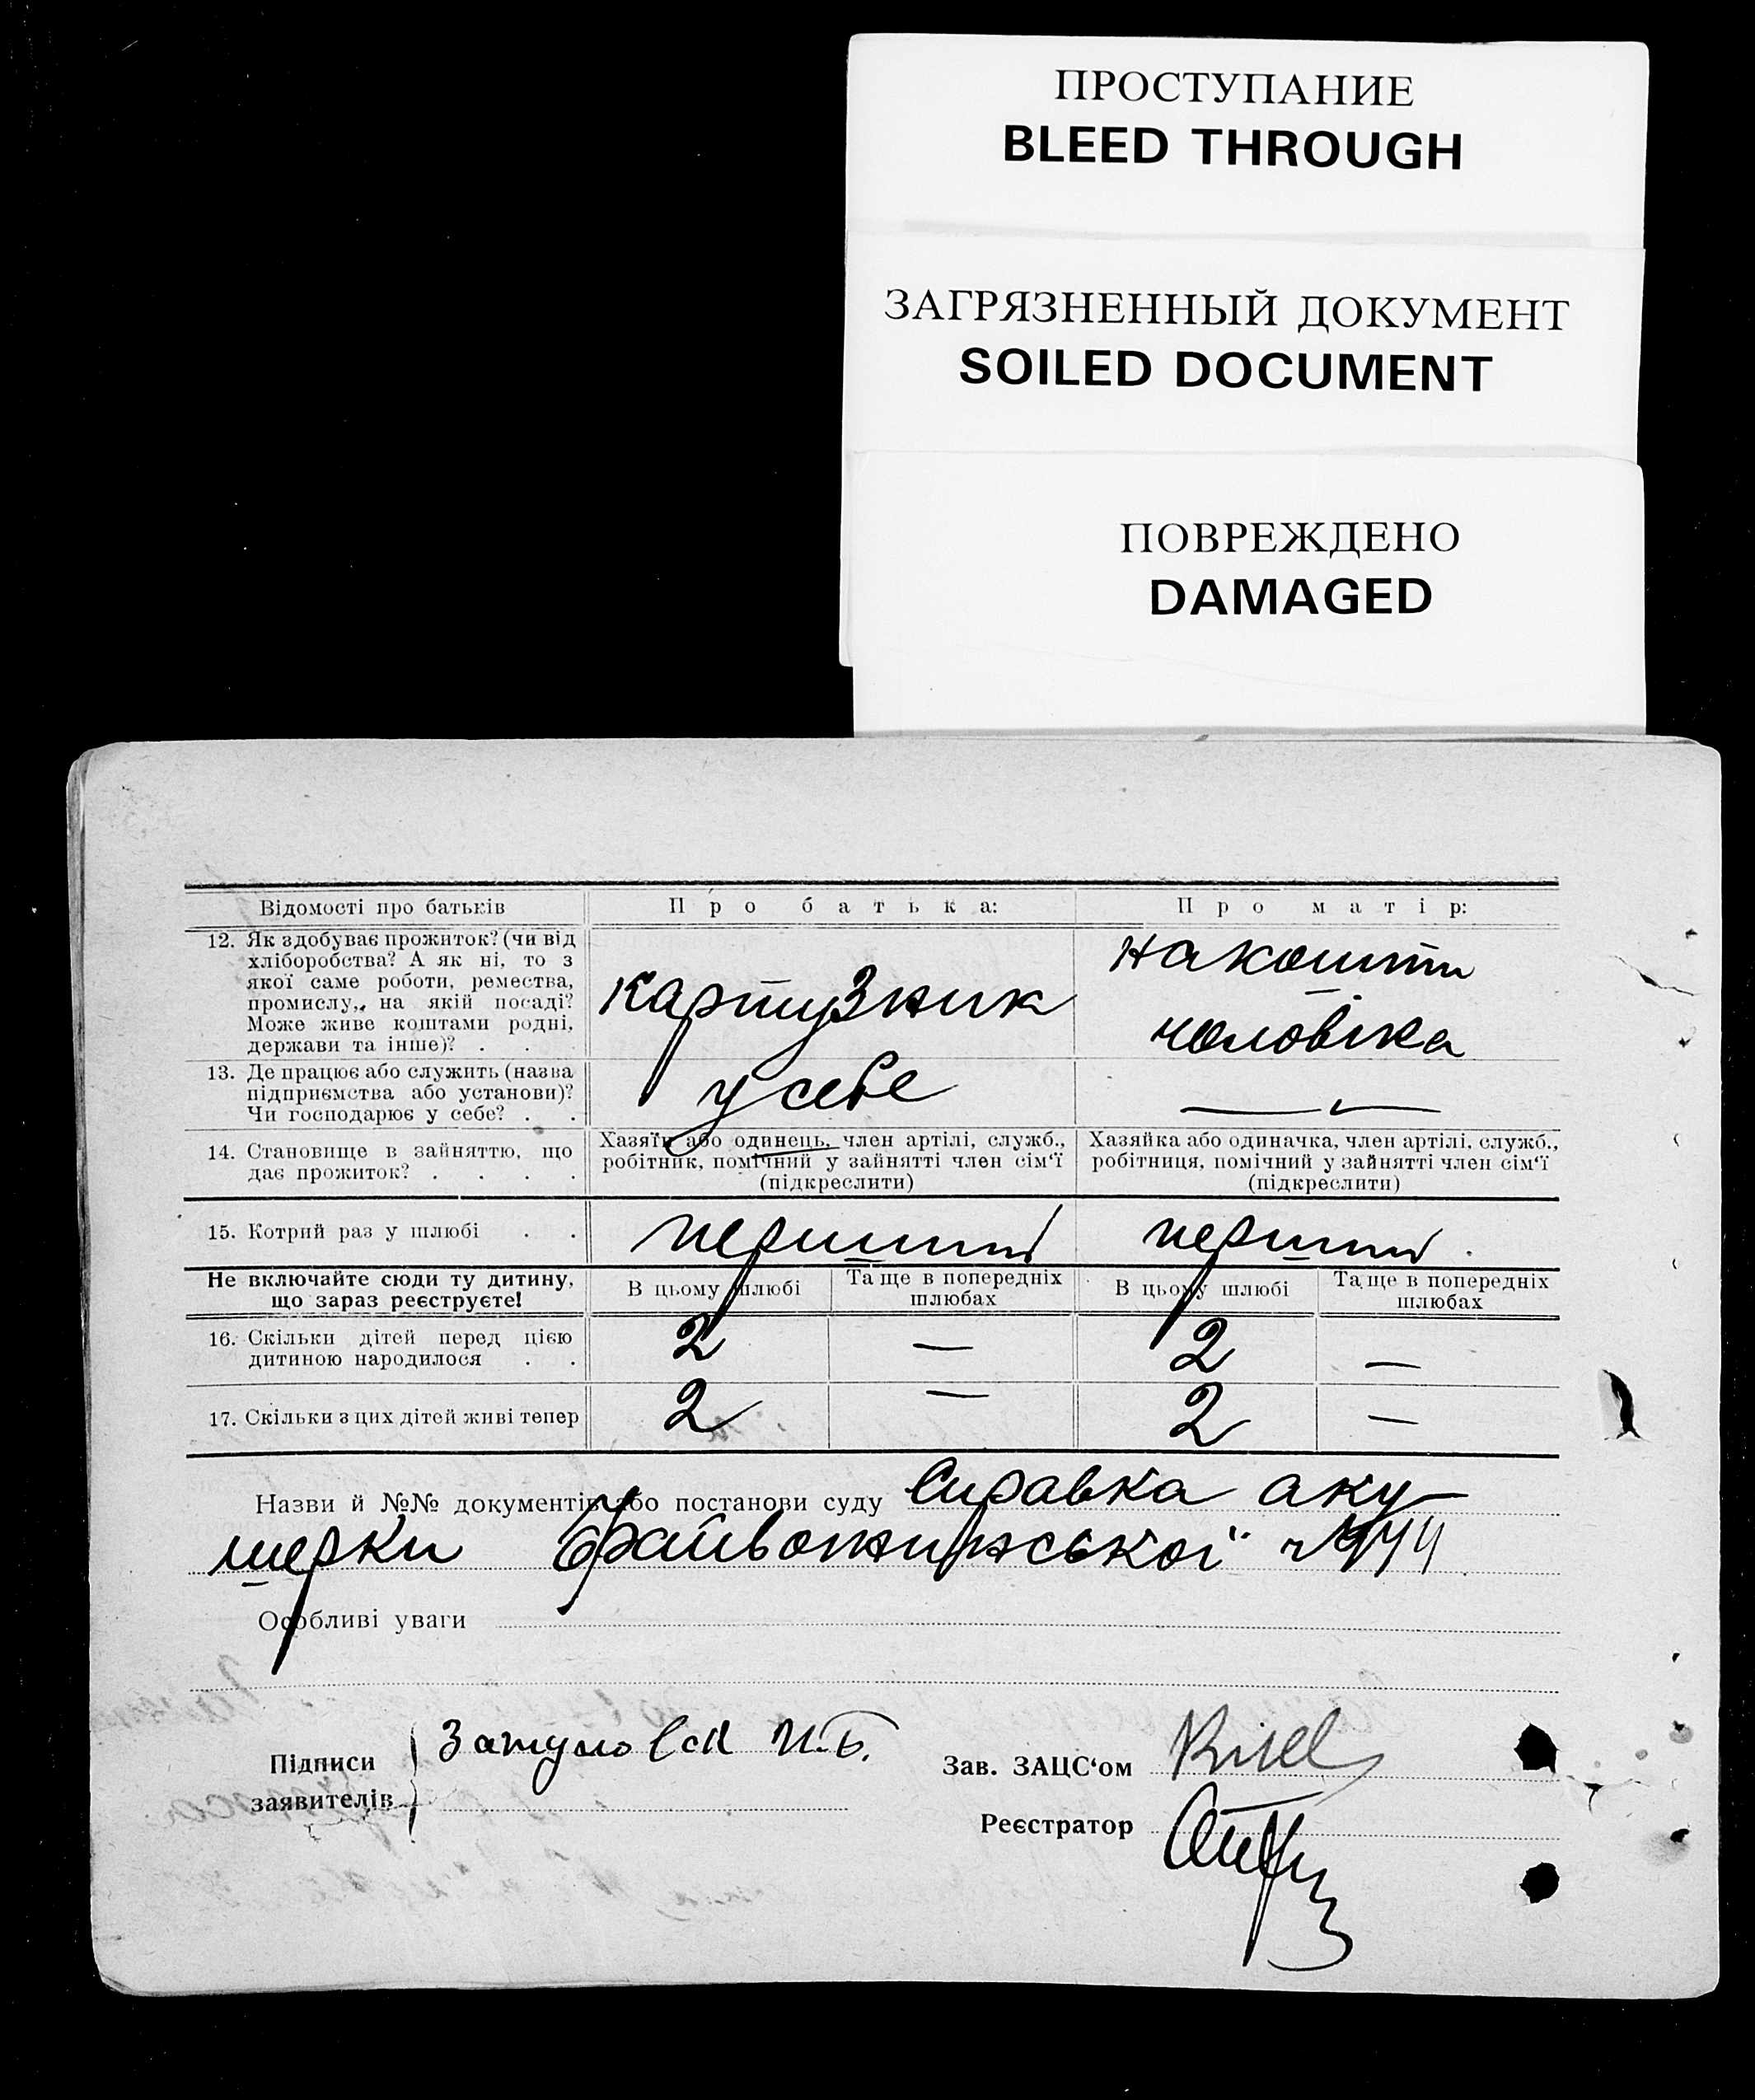 ПРОСТУПАНИЕ
BLEED THROUGH
ЗАГРЯЗНЕННЫЙ ДОКУМЕНТ
SOILED DOCUMENT
ПОВРЕЖДЕНО
DAMAGED
Відомості про батьків
Про батька:
Про матір:
12. Як здобуває прожиток? (чи від
хліборобства? А як ні, то з
якої саме роботи, ремества,
промислу,, на якій посаді?
Може живе коштами родні,
держави та інше)? . .
картузник
на кошти
чоловіка
13. Де працює або служить (назва
підприємства або установи)?
Чи господарює у себе? . .
у себе
—
14. Становище в зайняттю, що
дає прожиток? . . . .
Хазяїн або одинець, член артілі, служб.,
робітник, помічний у зайнятті член сім‘ї
(підкреслити)
Хазяйка або одиначка, член артілі, служб.,
робітниця, помічний у зайнятті член сім‘ї
(підкреслити)
15. Котрий раз у шлюбі . .
перший
перший.
Не включайте сюди ту дитину,
що зараз реєструєте!
В цьому шлюбі
Та ще в попередніх
шлюбах
В цьому шлюбі
Та ще в попередніх
шлюбах
16. Скільки дітей перед цією
дитиною народилося . .
2 — 2 —
17. Скільки з цих дітей живі тепер
2 — 2 —
Назви й №№ документів або постанови суду Справка аку-
шерки
Особливі уваги
Підписи
заявителів
И.Б.
Зав. ЗАЦС‘ом
Реєстратор